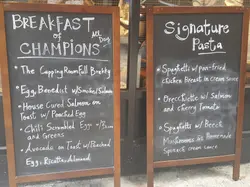 BREAKFAST
of
CHAMPIONS
All Day
• The Capping Room Full Brekky
• Egg Benedict w/Smoked Salmon
• House Cured Salmon on
Toast w/ Poached Egg
• Chilli Scrambled Eggs
and Greens
• Avocado on Toast w/ Poached
Egg, Ricotta
Signature
Pasta
• Spaghetti w/ pan-fried
chicken Breast in cream sauce
• Orecchiette w/ Salmon
and cherry Tomato
• Spaghetti w/
Mushrooms in Homemade
cream sauce